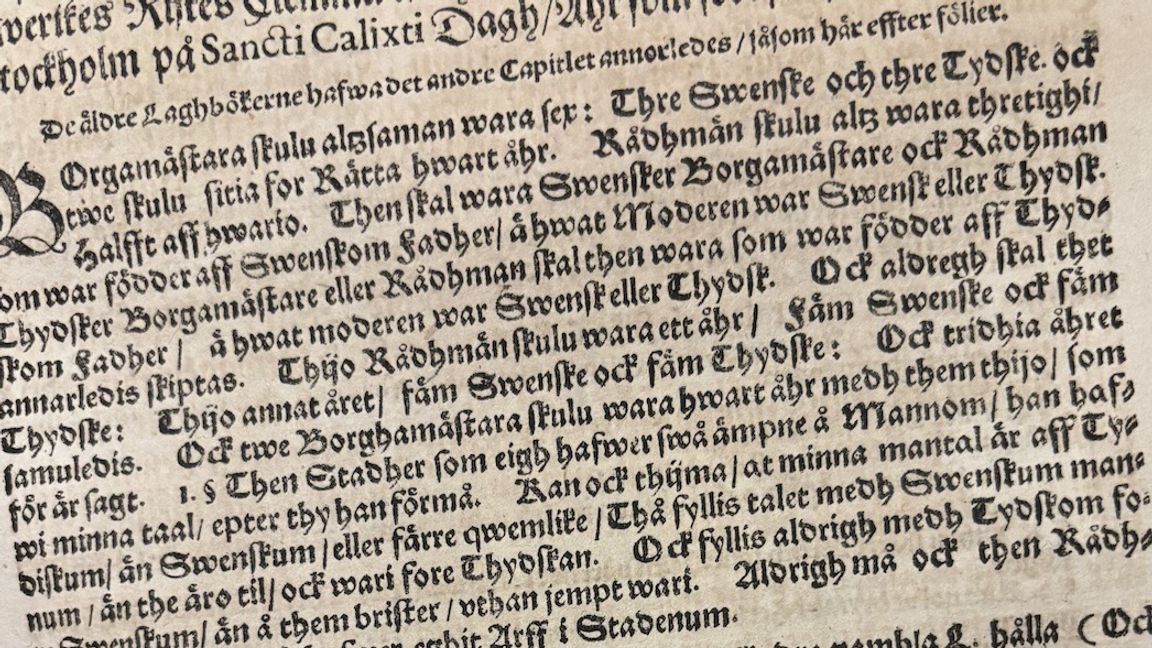 Stockholm på Sancti Calixti Dagh/ Åhr som
De äldre Laghbökerne hafwa det andre Capitlet annorledes / såsom här effter fölier.
BOrgamästara skulu altzsaman wara sex: Thre Swenske och thre Tydske. ock
twe skulu sitia for Rätta hwart åhr. Rådhmän skulu altz wara thretighi/
Halfft aff hwario. Then skal wara Swensker Borgamästare ock Rådhman
som war födder aff Swenskom Fadher/ ä hwat Moderen war Swensk eller Thydsk.
Thydsker Borgamästare eller Rådhman skal then wara som war födder aff Thyd⸗
skom Fadher / ä hwat moderen war Swensk eller Thydsk. Ock aldregh skal thet
annarledis skiptas. Thijo Rådhmän skulu wara ett åhr / Fäm Swenske ock fäm
Thydske: Thijo annat året/ fäm Swenske ock fäm Thydske: Ock tridhia åhret
samuledis. Ock twe Borghamästara skulu wara hwart åhr medh them thijo/ som
för är sagt. 1. § Then Stadher som eigh hafwer swå ämpne å Mannom/ han haf⸗
wi minna taal/ epter thy han förmå. Kan ock thijma/ at minna mantal är aff Ty⸗
diskum/ än Swenskum /eller färre qwemlike / Thå fyllis talet medh Swenskum man⸗
num / än the äro til/ ock wari fore Thydskan. Ock fyllis aldrigh medh Tydskom fo⸗
Swenskum/ än å them brister / vthan jempt wari. Aldrigh må ock then Rådh⸗
Arff i Stadenum.
gambla L. hålla (Ock